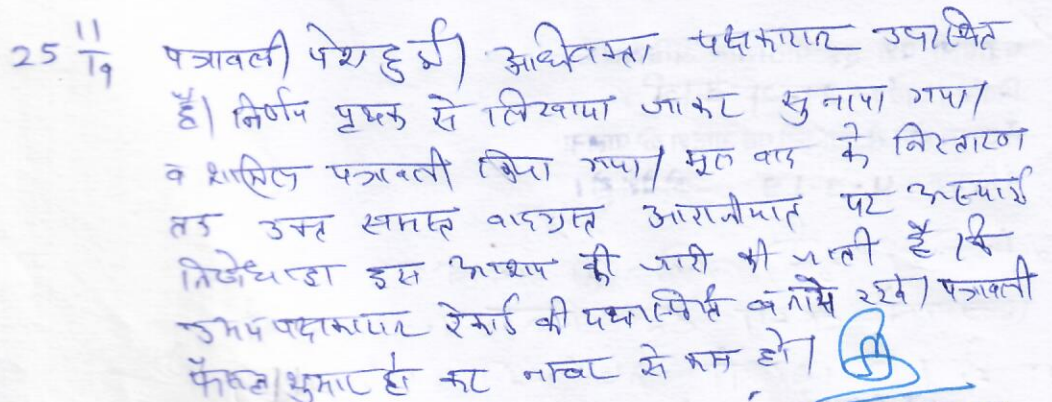 25 11/19 पत्रावली पेश हुई। अधिवक्ता पक्षकारान उपस्थित
है। निर्णय पृथक से लिखाया जाकर सुनाया गया।
व शामिल पत्रावली किया गया। मूल वाद के निस्तारण
तक उक्त समस्त वादग्रस्त आराजीयात पर अस्थाई
निषेधाज्ञा इस आशय की जारी की जाती है कि
उभय पक्षकारान रेकार्ड की यथास्थिति बनाये रखें। पत्रावली
फैसल शुमार हो कर नम्बर से कम हो।